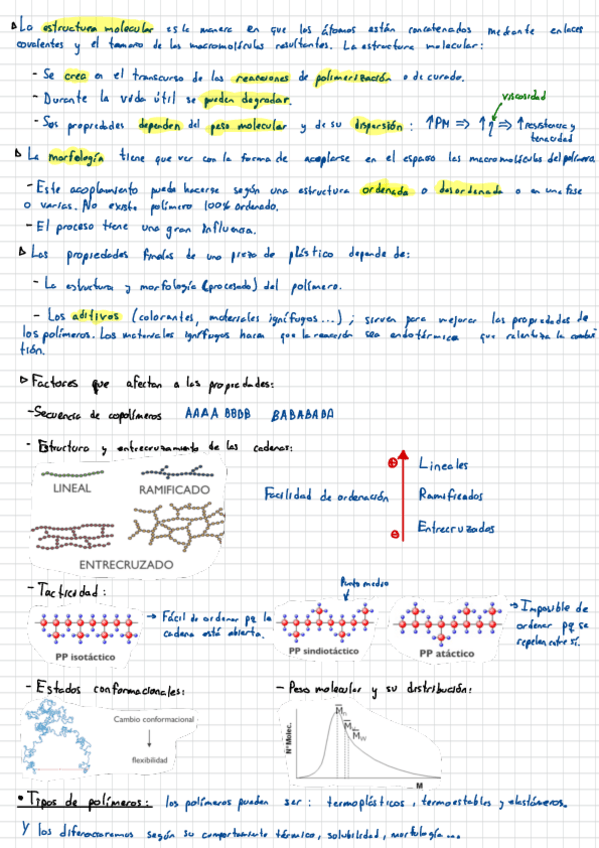 La estructura molecular es la manera en que los átomos están concatenados mediante enlaces
covalentes y el tamaño de las macromoléculas resultantes. La estructura molecular:
- Se crea en el transcurso de las reacciones de polimerización o de curado.
- Durante la vida útil se pueden degradar.
viscosidad
- Sus propiedades dependen del peso molecular y de su dispersión: ↑PM ⇒ ↑η ⇒ ↑resistencia y
tenacidad
La morfología tiene que ver con la forma de acoplarse en el espacio las macromoléculas del polímero
- Este acoplamiento puede hacerse según una estructura ordenada o desordenada o en una fase
o varias. No existe polímero 100% ordenado.
- El proceso tiene una gran influencia.
Las propiedades finales de una pieza de plástico depende de:
- La estructura y morfología (procesado) del polímero.
- Los aditivos (colorantes, materiales ignífugos...); sirven para mejorar las propiedades de
los polímeros. Los materiales ignífugos harán que la reacción sea endotérmica que ralentiza la combus
tión.
Factores que afectan a las propiedades:
- Secuencia de copolímeros AAAA BBBB BABABABA
- Estructura y entrecruzamiento de las cadenas:
LINEAL RAMIFICADO
ENTRECRUZADO
Facilidad de ordenación
⊕ Lineales
Ramificados
⊖ Entrecruzados
- Tacticidad:
Punto medio
→ Fácil de ordenar pq la
cadena está abierta.
→ Imposible de
ordenar pq se
repelen entre sí.
PP isotáctico PP sindiotáctico PP atáctico
- Estados conformacionales: - Peso molecular y su distribución:
Cambio conformacional
flexibilidad
NºMolec.
Mn
Mw
M
• Tipos de polímeros: los polímeros pueden ser: termoplásticos, termoestables y elastómeros.
Y los diferenciaremos según su comportamiento térmico, solubilidad, morfología...